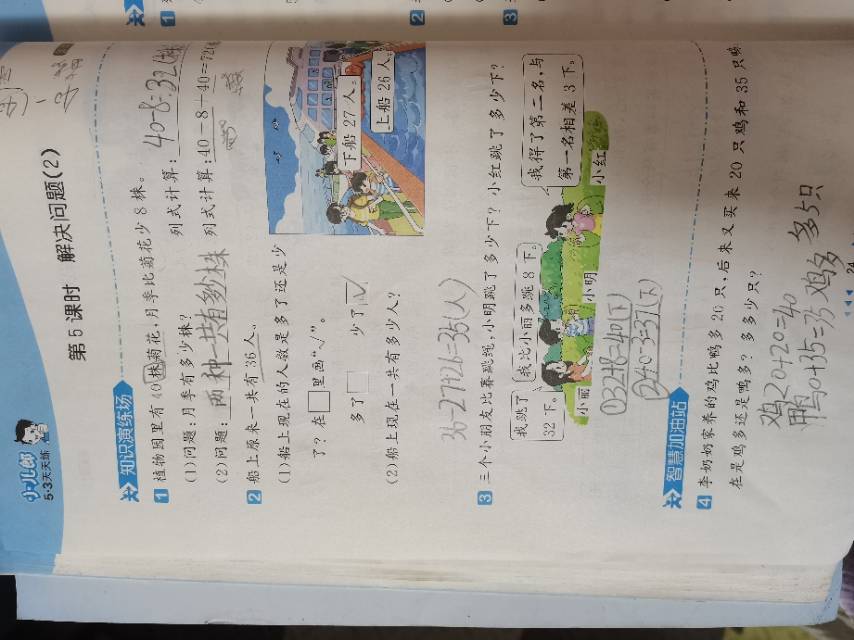 小儿郎
5·3天天练
第5课时 解决问题(2)
知识演练场
1 植物园里有40株菊花,月季比菊花少8株。
(1)问题:月季有多少株? 列式计算:40-8=32(株)
(2)问题:两种一共有多少株 列式计算:40-8+40=72(株)
2 船上原来一共有36人。
(1)船上现在的人数是多了还是少
了?在□里画“√”。
多了□ 少了√
下船27人。
上船26人。
(2)船上现在一共有多少人?
36-27+26=35(人)
3 三个小朋友比赛跳绳,小明跳了多少下?小红跳了多少下?
我跳了
32下。
我比小丽多跳8下。
我得了第二名,与
第一名相差3下。
小丽
小明
小红
①32+8=40(下)
②40-3=37(下)
智慧加油站
4 李奶奶家养的鸡比鸭多20只,后来又买来20只鸡和35只鸭
在是鸡多还是鸭多?多多少只?
鸡20+20=40
鸭0+35=35 鸡多 多5只
24
2
3
1